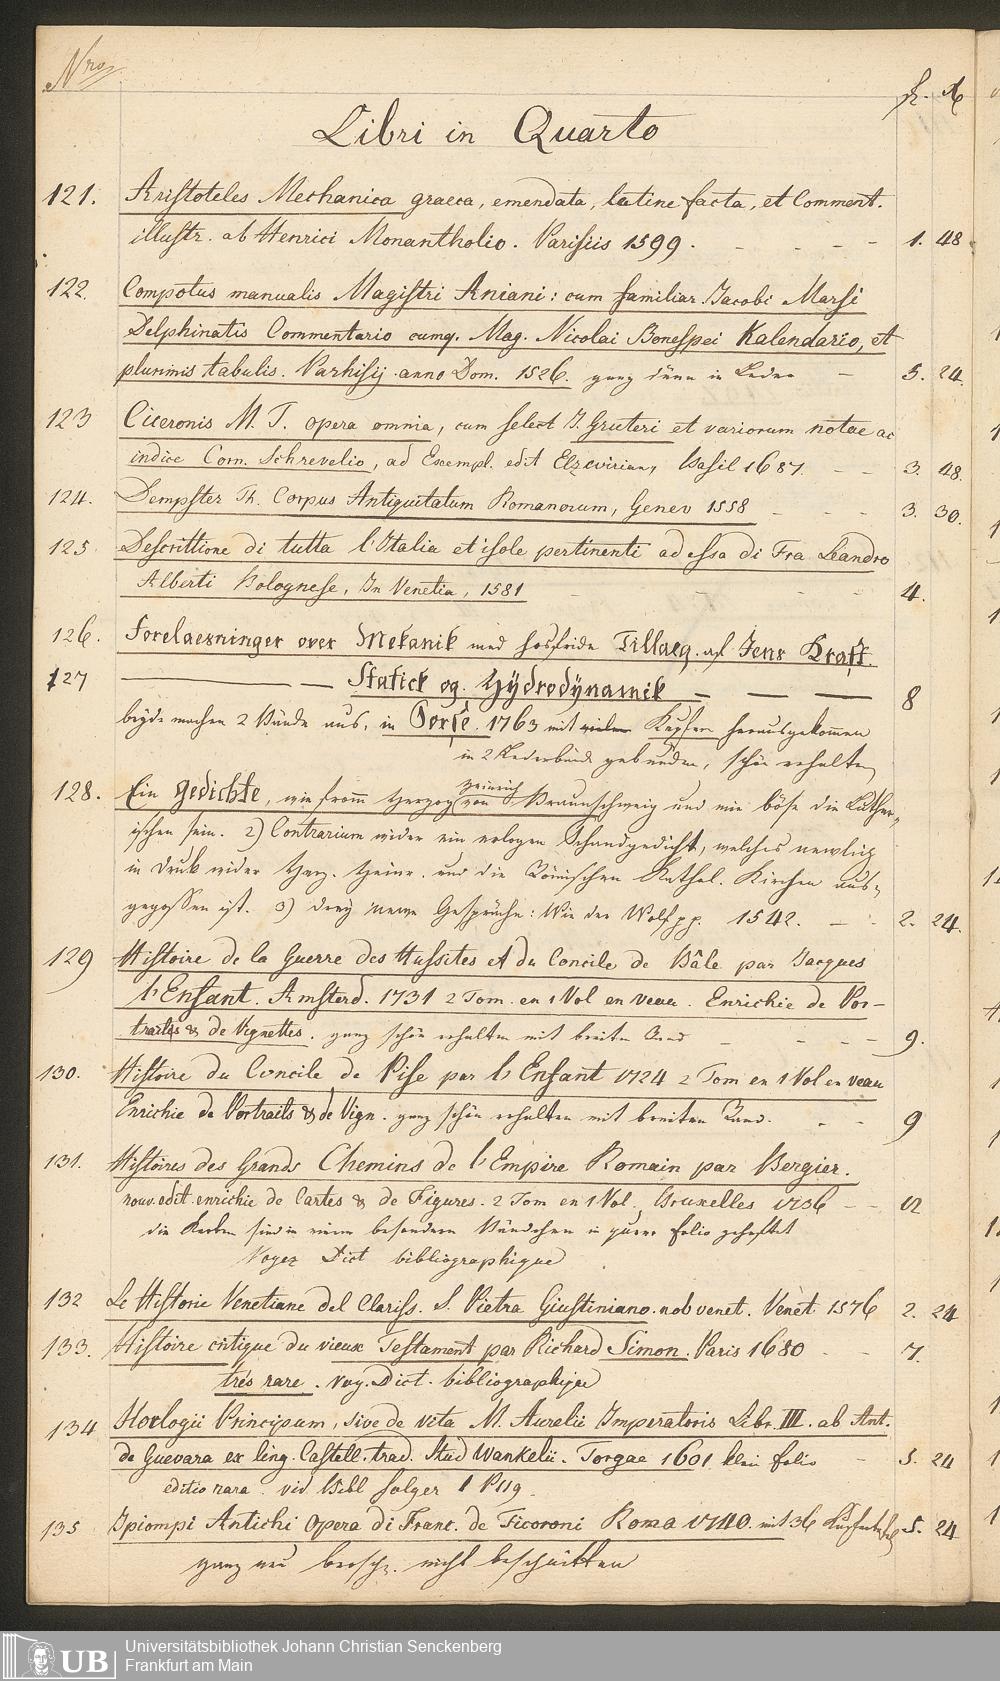 Nro
fr. x
Libri in Quarto
121. Aristoteles Mechanica graeca, emendata, latine facta, et Comment.
illustr. ab Henrici Monantholio. Parisiis 1599. - - - - 1. 48
122. Compotus manualis Magistri Aniani: cum familiar. Jacobi Marsi
Delphinatis Commentario cumq. Mag. Nicolai Bonespei Kalendario, et
plurimis tabulis. Parhisij. anno Dom. 1526. ganz dünn in Leder - 5. 24.
123 Ciceronis M. T. opera omnia, cum select J. Gruteri et variorum notae ac
indice Corn. Schrevelio, ad Exempl. edit Elzevirian, Basil 1687. - - 3. 48.
124. Dempster Th. Corpus Antiquitatum Romanorum, Genev 1558 - - - 3. 30.
125 Descrittione di tutta l'Italia et isole pertinenti ad essa di Fra Leandro
Alberti Bolognese, In Venetia, 1581 - - - - 4.
126. Forelaesninger over Mekanik med hosfeide Tillaeg. af Jens Kraft.
127 — — Statick og. Hÿdrodÿnamik — — — 8
beÿde machen 2 Bände aus, in Sorse. 1763 mit vielen Kupfern herausgekommen
in 2 Lederbände gebunden, schön erhalten
128. Ein Gedichte, wie fromm Herzog Heinrich von Braunschweig und wie böse die Luther-
ischen sein. 2) Contrarium wider ein erlogen Schandgedicht, welches newlich
in Druk wider Herz. Heinr. und die Römischen Kathol. Kirchen aus-
gegossen ist. 3) Dreÿ newe Gespräche: Wie der Wolf pp. 1542. - - 2. 24.
129 Histoire de la Guerre des Hussites et du Concile de Bâle par Jacques
l'Enfant. Amsterd. 1731 2 Tom. en 1 Vol en veau. Enrichie de Por-
traits & de Vignettes. ganz schön erhalten mit breiten Rand - - - - 9.
130. Histoire du Concile de Pise par l'Enfant 1724 2 Tom en 1 Vol en veau
Enrichie de Portraits & de Vign. ganz schön erhalten mit breiten Rand. - - 9
131. Histoires des Grands Chemins de l'Empire Romain par Bergier.
nouv. edit. enrichie de Cartes & de Figures. 2 Tom en 1 Vol. Bruxelles 1736 - - 12
die Karten sind in einem besondern Bändchen in quer folio geheftet
Voyez Dict bibliographique
132 Le Historie Venetiane del Clariss. S. Pietro Giustiniano. nob venet. Venet. 1576 2. 24
133. Histoire critique du vieux Testament par Richard Simon. Paris 1680 - - 7.
trés rare. Voy. Dict. bibliographique
134 Horlogii Principum, sive de vita M. Aurelii Imperatoris Libr. III. ab Ant.
de Guevara ex ling. Castell. trad. Stud Wankelii. Torgae 1601 klein folio - 5. 24
editio rara. vid. Bibl Solger 1 P 119.
135 I piompi Antichi Opera di Franc. de Ficoroni Roma 1740. mit 36 Kupfertafeln 5. 24
ganz neu brosch. nicht beschnitten
UB
Universitätsbibliothek Johann Christian Senckenberg
Frankfurt am Main